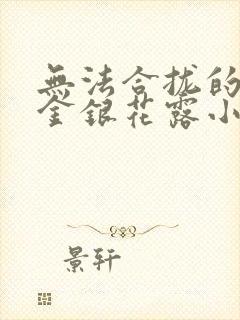 無法合拢的
金銀花露小
景轩